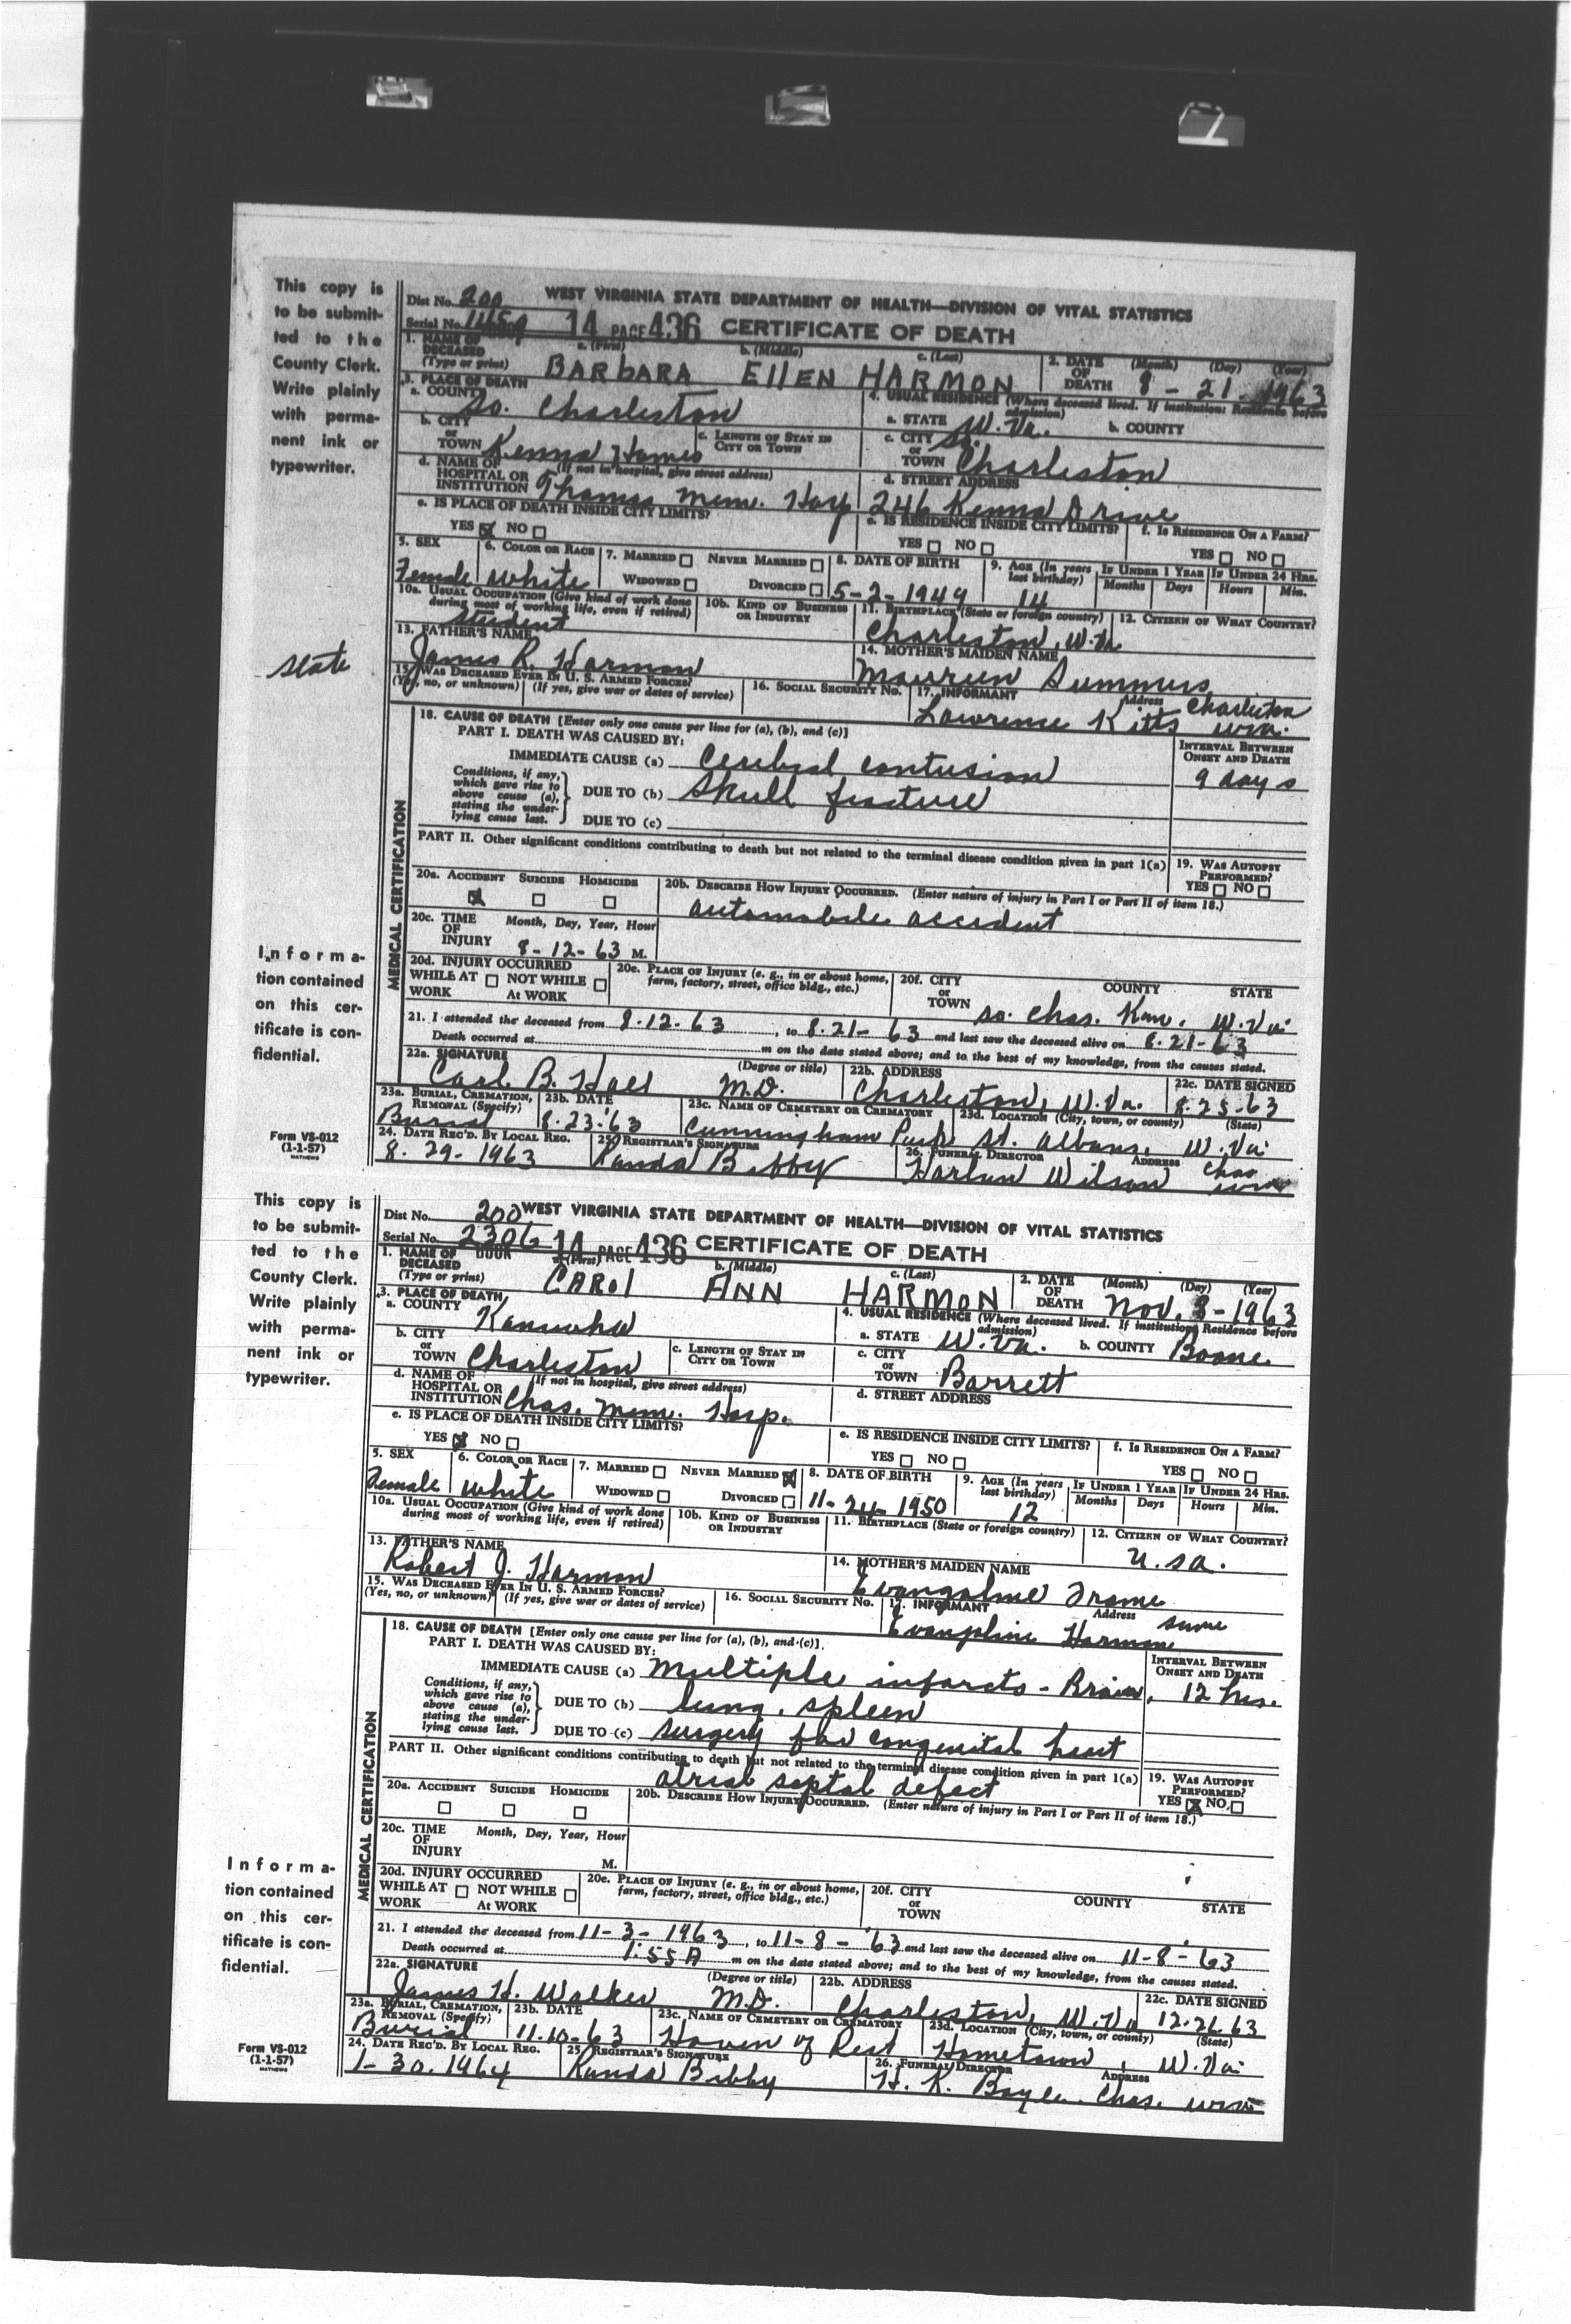 This copy is
to be submit-
ted to the
County Clerk.
Write plainly
with perma-
nent ink or
typewriter.
state
Informa-
tion contained
on this cer-
tificate is con-
fidential.
Form VS-012
(1-1-57)
MATHEWS
Dist No. 200 WEST VIRGINIA STATE DEPARTMENT OF HEALTH—DIVISION OF VITAL STATISTICS
Serial No. 14 PAGE 436 CERTIFICATE OF DEATH
1. NAME OF DECEASED (Type or print) a. (First) BARBARA b. (Middle) EllEN c. (Last) HARMON 2. DATE OF DEATH (Month) (Day) (Year) 8-21-1963
3. PLACE OF DEATH a. COUNTY So. Charleston 4. USUAL RESIDENCE (Where deceased lived. If institution: Residence before admission) a. STATE W.Va. b. COUNTY
b. CITY or TOWN Kenna Homes c. LENGTH OF STAY IN CITY OR TOWN c. CITY or TOWN So. Charleston
d. NAME OF HOSPITAL OR INSTITUTION (If not in hospital, give street address) Thomas Mem. Hosp d. STREET ADDRESS 246 Kenna Drive
e. IS PLACE OF DEATH INSIDE CITY LIMITS? YES NO e. IS RESIDENCE INSIDE CITY LIMITS? YES NO f. IS RESIDENCE ON A FARM? YES NO
5. SEX Female 6. COLOR OR RACE white 7. MARRIED NEVER MARRIED WIDOWED DIVORCED 8. DATE OF BIRTH 5-2-1949 9. AGE (In years last birthday) 14 IF UNDER 1 YEAR Months Days IF UNDER 24 HRS. Hours Min.
10a. USUAL OCCUPATION (Give kind of work done during most of working life, even if retired) student 10b. KIND OF BUSINESS OR INDUSTRY 11. BIRTHPLACE (State or foreign country) Charleston, W.Va 12. CITIZEN OF WHAT COUNTRY?
13. FATHER'S NAME James R. Harmon 14. MOTHER'S MAIDEN NAME Maureen Summers
15. WAS DECEASED EVER IN U. S. ARMED FORCES? (Yes, no, or unknown) (If yes, give war or dates of service) 16. SOCIAL SECURITY NO. 17. INFORMANT Lawrence Kitts Address Charleston wva.
MEDICAL CERTIFICATION
18. CAUSE OF DEATH [Enter only one cause per line for (a), (b), and (c)]
PART I. DEATH WAS CAUSED BY: INTERVAL BETWEEN ONSET AND DEATH
IMMEDIATE CAUSE (a) Cerebral contusion 9 days
Conditions, if any, which gave rise to above cause (a), stating the underlying cause last. DUE TO (b) Skull fracture
DUE TO (c)
PART II. Other significant conditions contributing to death but not related to the terminal disease condition given in part 1(a) 19. WAS AUTOPSY PERFORMED? YES NO
20a. ACCIDENT SUICIDE HOMICIDE 20b. DESCRIBE HOW INJURY OCCURRED. (Enter nature of injury in Part I or Part II of item 18.) automobile accident
20c. TIME OF INJURY Month, Day, Year, Hour 8-12-63 M.
20d. INJURY OCCURRED WHILE AT WORK NOT WHILE AT WORK 20e. PLACE OF INJURY (e. g., in or about home, farm, factory, street, office bldg., etc.) 20f. CITY or TOWN COUNTY STATE So. Chas. Kan. W.Va.
21. I attended the deceased from 8-12-63, to 8-21-63 and last saw the deceased alive on 8-21-63
Death occurred at m on the date stated above; and to the best of my knowledge, from the causes stated.
22a. SIGNATURE Carl B. Hall (Degree or title) M.D. 22b. ADDRESS Charleston, W.Va. 22c. DATE SIGNED 8-25-63
23a. BURIAL, CREMATION, REMOVAL (Specify) Burial 23b. DATE 8-23-63 23c. NAME OF CEMETERY OR CREMATORY Cunningham Park 23d. LOCATION (City, town, or county) (State) St. Albans, W.Va.
24. DATE REC'D. BY LOCAL REG. 8-29-1963 25. REGISTRAR'S SIGNATURE Randa Bibby 26. FUNERAL DIRECTOR ADDRESS Harlan Wilson Chas wva
This copy is
to be submit-
ted to the
County Clerk.
Write plainly
with perma-
nent ink or
typewriter.
Informa-
tion contained
on this cer-
tificate is con-
fidential.
Form VS-012
(1-1-57)
MATHEWS
Dist No. 200 WEST VIRGINIA STATE DEPARTMENT OF HEALTH—DIVISION OF VITAL STATISTICS
Serial No. 2306 14 PAGE 436 CERTIFICATE OF DEATH
1. NAME OF DECEASED (Type or print) (First) CAROl b. (Middle) ANN c. (Last) HARMON 2. DATE OF DEATH (Month) (Day) (Year) Nov. 8-1963
3. PLACE OF DEATH a. COUNTY Kanawha 4. USUAL RESIDENCE (Where deceased lived. If institution: Residence before admission) a. STATE W.Va. b. COUNTY Boone
b. CITY or TOWN Charleston c. LENGTH OF STAY IN CITY OR TOWN c. CITY or TOWN Barrett
d. NAME OF HOSPITAL OR INSTITUTION (If not in hospital, give street address) Chas. Mem. Hosp. d. STREET ADDRESS
e. IS PLACE OF DEATH INSIDE CITY LIMITS? YES NO e. IS RESIDENCE INSIDE CITY LIMITS? YES NO f. IS RESIDENCE ON A FARM? YES NO
5. SEX Female 6. COLOR OR RACE white 7. MARRIED NEVER MARRIED WIDOWED DIVORCED 8. DATE OF BIRTH 11-24-1950 9. AGE (In years last birthday) 12 IF UNDER 1 YEAR Months Days IF UNDER 24 HRS. Hours Min.
10a. USUAL OCCUPATION (Give kind of work done during most of working life, even if retired) 10b. KIND OF BUSINESS OR INDUSTRY 11. BIRTHPLACE (State or foreign country) 12. CITIZEN OF WHAT COUNTRY? U.S.A.
13. FATHER'S NAME Robert J. Harmon 14. MOTHER'S MAIDEN NAME Evangaline Frame
15. WAS DECEASED EVER IN U. S. ARMED FORCES? (Yes, no, or unknown) (If yes, give war or dates of service) 16. SOCIAL SECURITY NO. 17. INFORMANT Evangeline Harmon Address same
MEDICAL CERTIFICATION
18. CAUSE OF DEATH [Enter only one cause per line for (a), (b), and (c)].
PART I. DEATH WAS CAUSED BY: INTERVAL BETWEEN ONSET AND DEATH
IMMEDIATE CAUSE (a) Multiple infarcts - Brain, 12 hrs.
Conditions, if any, which gave rise to above cause (a), stating the underlying cause last. DUE TO (b) lung, spleen
DUE TO (c) surgery for congenital heart
PART II. Other significant conditions contributing to death but not related to the terminal disease condition given in part 1(a) atrial septal defect 19. WAS AUTOPSY PERFORMED? YES NO
20a. ACCIDENT SUICIDE HOMICIDE 20b. DESCRIBE HOW INJURY OCCURRED. (Enter nature of injury in Part I or Part II of item 18.)
20c. TIME OF INJURY Month, Day, Year, Hour M.
20d. INJURY OCCURRED WHILE AT WORK NOT WHILE AT WORK 20e. PLACE OF INJURY (e. g., in or about home, farm, factory, street, office bldg., etc.) 20f. CITY or TOWN COUNTY STATE
21. I attended the deceased from 11-3-1963, to 11-8-'63 and last saw the deceased alive on 11-8-63
Death occurred at 1:55A m on the date stated above; and to the best of my knowledge, from the causes stated.
22a. SIGNATURE James H. Walker (Degree or title) M.D. 22b. ADDRESS Charleston, W.Va 22c. DATE SIGNED 12-26-63
23a. BURIAL, CREMATION, REMOVAL (Specify) Burial 23b. DATE 11-10-63 23c. NAME OF CEMETERY OR CREMATORY Haven of Rest 23d. LOCATION (City, town, or county) (State) Hometown, W.Va.
24. DATE REC'D. BY LOCAL REG. 1-30-1964 25. REGISTRAR'S SIGNATURE Randa Bibby 26. FUNERAL DIRECTOR ADDRESS H. K. Boyle Chas. wva